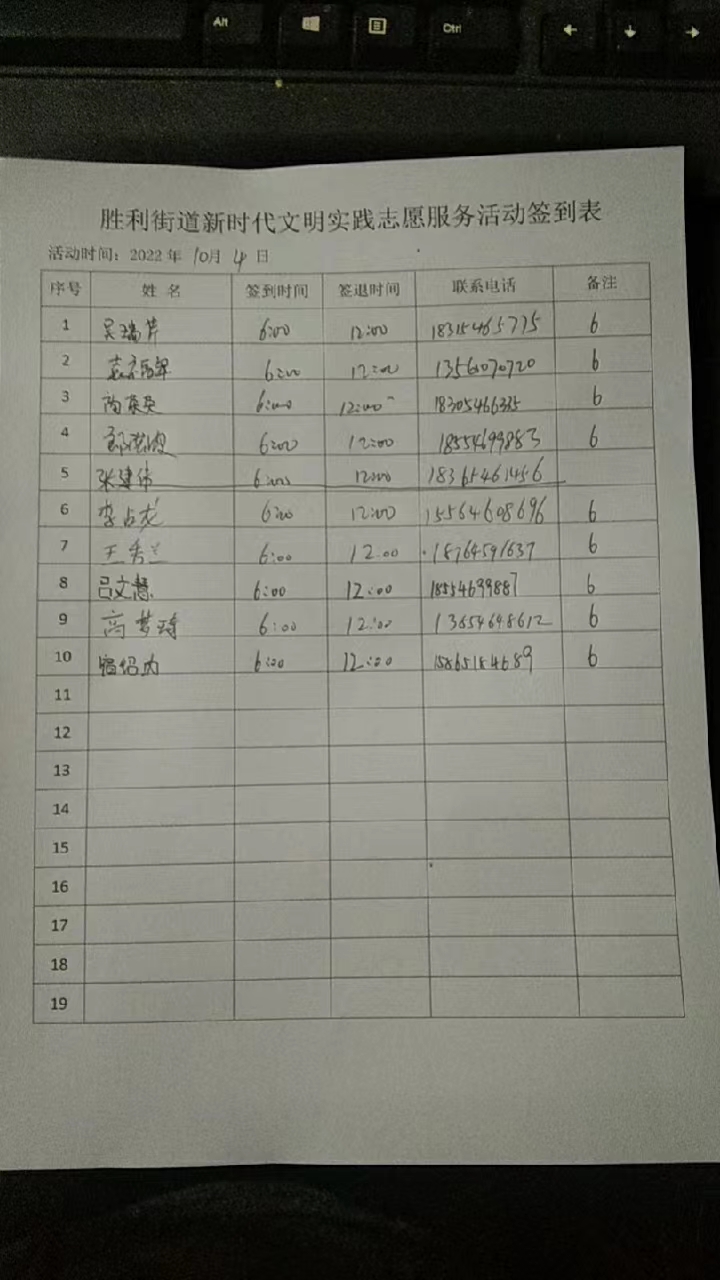 Alt
Ctrl
胜利街道新时代文明实践志愿服务活动签到表
活动时间：2022 年 10月 4 日
序号 姓 名 签到时间 签退时间 联系电话 备注
1 吴瑞芹 6:00 12:00 18315465775 6
2 6:00 12:00 13561070720 6
3 6:00 12:00 6
4 6:00 12:00 18554699883 6
5 张建伟 6:00 12:00 18365461456
6 李占龙 6:00 12:00 15564608696 6
7 王秀兰 6:00 12:00 18764591637 6
8 吕文慧 6:00 12:00 18554699887 6
9 高梦琦 6:00 12:00 13654698612 6
10 6:00 12:00 15865184689 6
11
12
13
14
15
16
17
18
19